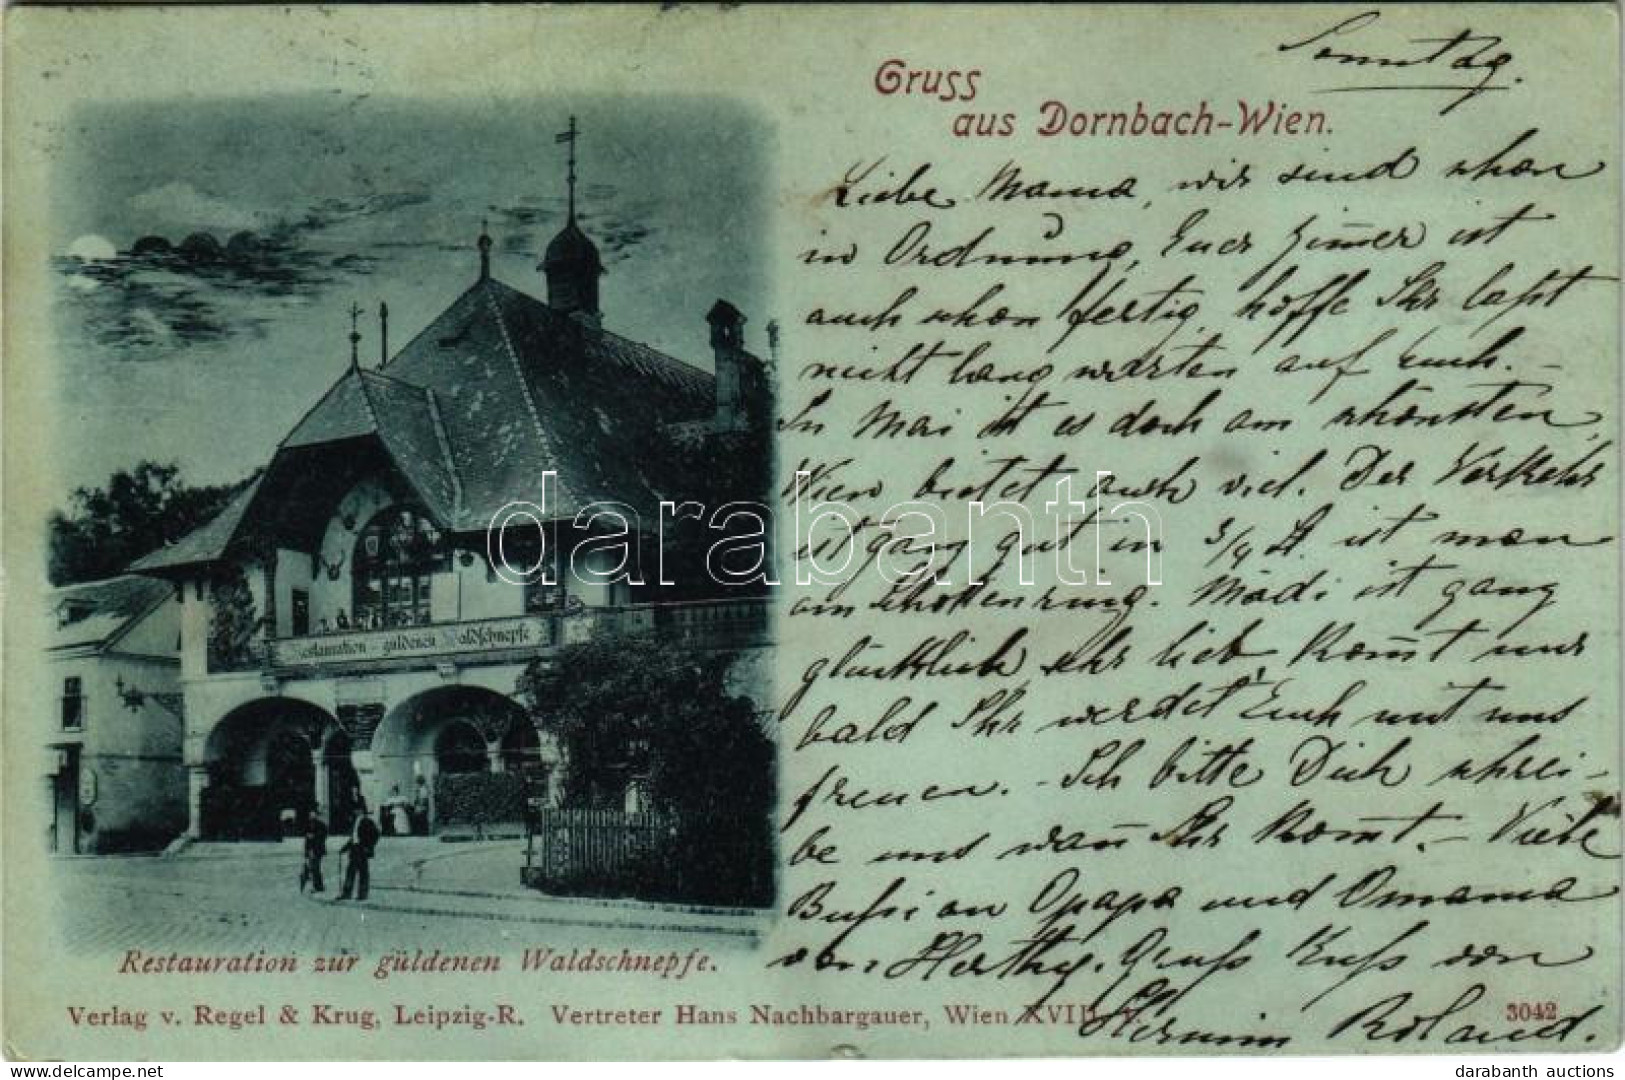 Sonntag.
Gruss
aus Dornbach-Wien.
Liebe Mama, wir sind schon
in Ordnung, Euer Zim̅er ist
auch schon fertig, hoffe Ihr laßt
nicht lang warten auf Euch. –
In Mai ist es doch am schönsten,
Wien bietet auch viel. Der Verkehr
ist ganz gut in 3/4 St. ist man
am Schottenring. Mädi ist ganz
glücklich, Ihr lieb, Kom̅t nur
bald Ihr werdet Euch mit uns
freuen. - Ich bitte Dich schrei-
be uns wan̅ Ihr kom̅t. – Viele
Bussi an Opapa und Omama
von Herthy. Gruß Kuß von
Hermin Roland.
Restauration zur güldenen Waldschnepfe
Restauration zur güldenen Waldschnepfe.
Verlag v. Regel & Krug, Leipzig-R. Vertreter Hans Nachbargauer, Wien XVIII. 3042
darabanth
darabanth auctions